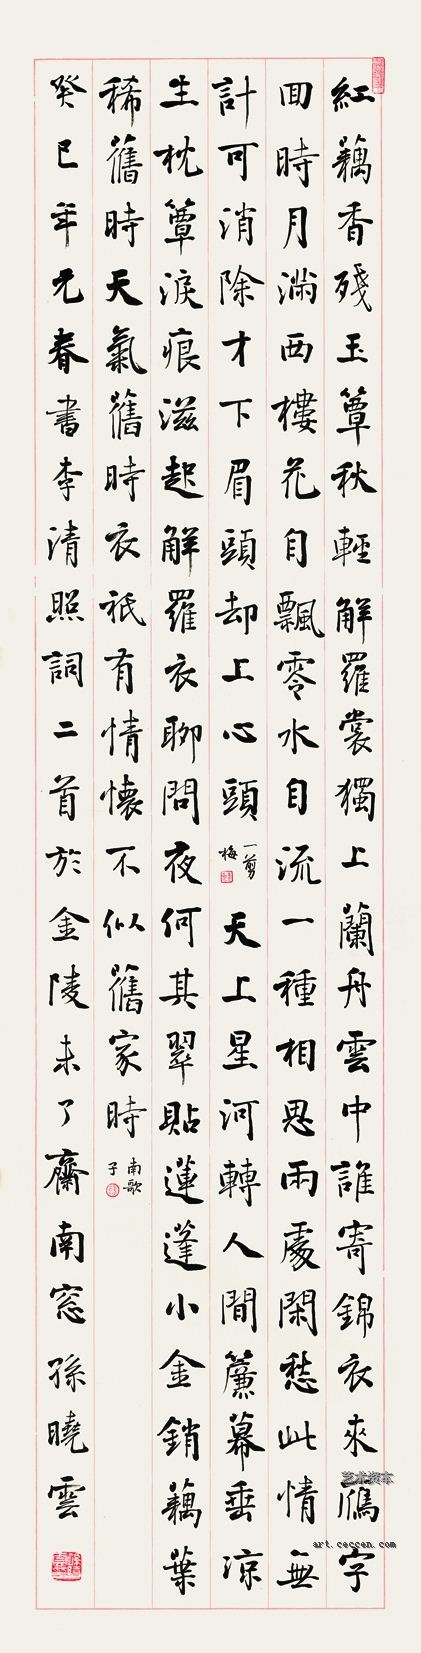 紅藕香殘玉簟秋輕解羅裳獨上蘭舟雲中誰寄錦衣來鴈字
回時月滿西樓花自飄零水自流一種相思兩處閑愁此情無
計可消除才下眉頭却上心頭一剪梅天上星河轉人間簾幕垂凉
生枕簟淚痕滋起解羅衣聊問夜何其翠貼蓮蓬小金銷藕葉
稀舊時天氣舊時衣祇有情懷不似舊家時南歌子
癸巳年元春書李清照詞二首於金陵未了齋南窓孫曉雲
艺术资本
art.ceccen.com